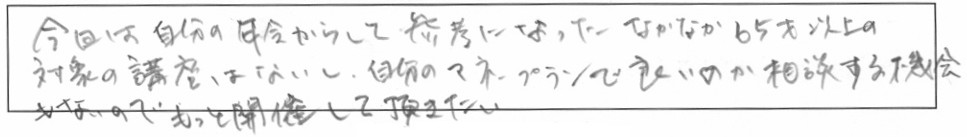 今回は自分の年令からして参考になった なかなか65才以上の
対象の講座はないし、自分のマネープランで良いのか相談する機会
もないのでもっと開催して頂きたい